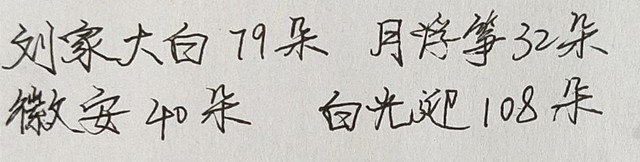 刘家大白79朵 月浮筝32朵
徽安40朵 白光迎108朵